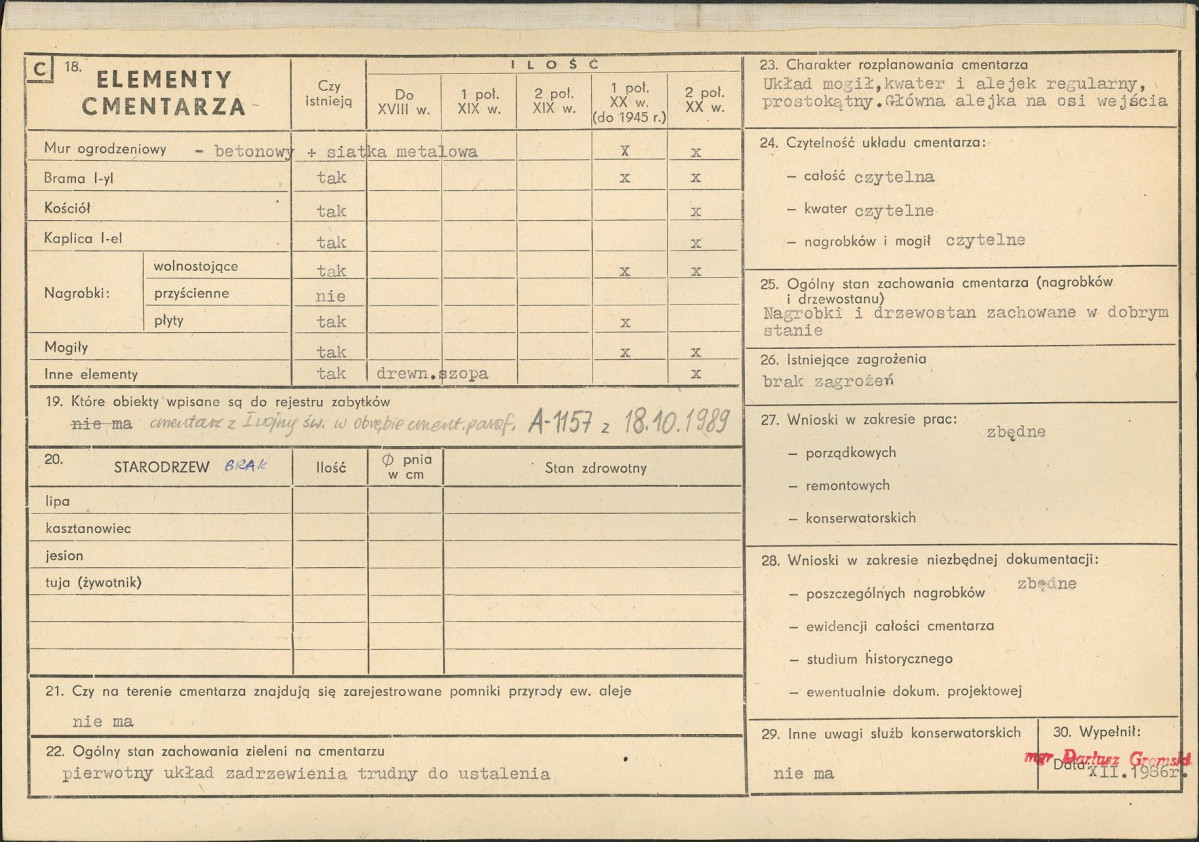 C 18. ELEMENTY
CMENTARZA
Czy
istnieją
ILOŚĆ
Do
XVIII w.
1 poł.
XIX w.
2 poł.
XIX w.
1 poł.
XX w.
(do 1945 r.)
2 poł.
XX w.
Mur ogrodzeniowy - betonowy + siatka metalowa x x
Brama I-yl tak x x
Kościół tak x
Kaplica I-el tak x
Nagrobki:
wolnostojące tak x x
przyścienne nie
płyty tak x
Mogiły tak x x
Inne elementy tak drewn.szopa x
19. Które obiekty wpisane są do rejestru zabytków
nie ma cmentarz z I wojny św. w obrębie cment. paraf. A-1157 z 18.10.1989
20. STARODRZEW BRAK
Ilość
Ø pnia
w cm
Stan zdrowotny
lipa
kasztanowiec
jesion
tuja (żywotnik)
21. Czy na terenie cmentarza znajdują się zarejestrowane pomniki przyrody ew. aleje
nie ma
22. Ogólny stan zachowania zieleni na cmentarzu
pierwotny układ zadrzewienia trudny do ustalenia
23. Charakter rozplanowania cmentarza
Układ mogił,kwater i alejek regularny,
prostokątny.Główna alejka na osi wejścia
24. Czytelność układu cmentarza:
– całość czytelna
– kwater czytelne
– nagrobków i mogił czytelne
25. Ogólny stan zachowania cmentarza (nagrobków
i drzewostanu)
Nagrobki i drzewostan zachowane w dobrym
stanie
26. Istniejące zagrożenia
brak zagrożeń
27. Wnioski w zakresie prac:
zbędne
– porządkowych
– remontowych
– konserwatorskich
28. Wnioski w zakresie niezbędnej dokumentacji:
zbędne
– poszczególnych nagrobków
– ewidencji całości cmentarza
– studium historycznego
– ewentualnie dokum. projektowej
29. Inne uwagi służb konserwatorskich
nie ma
30. Wypełnił:
mgr Dariusz Gromski
Data: XII.1986r.